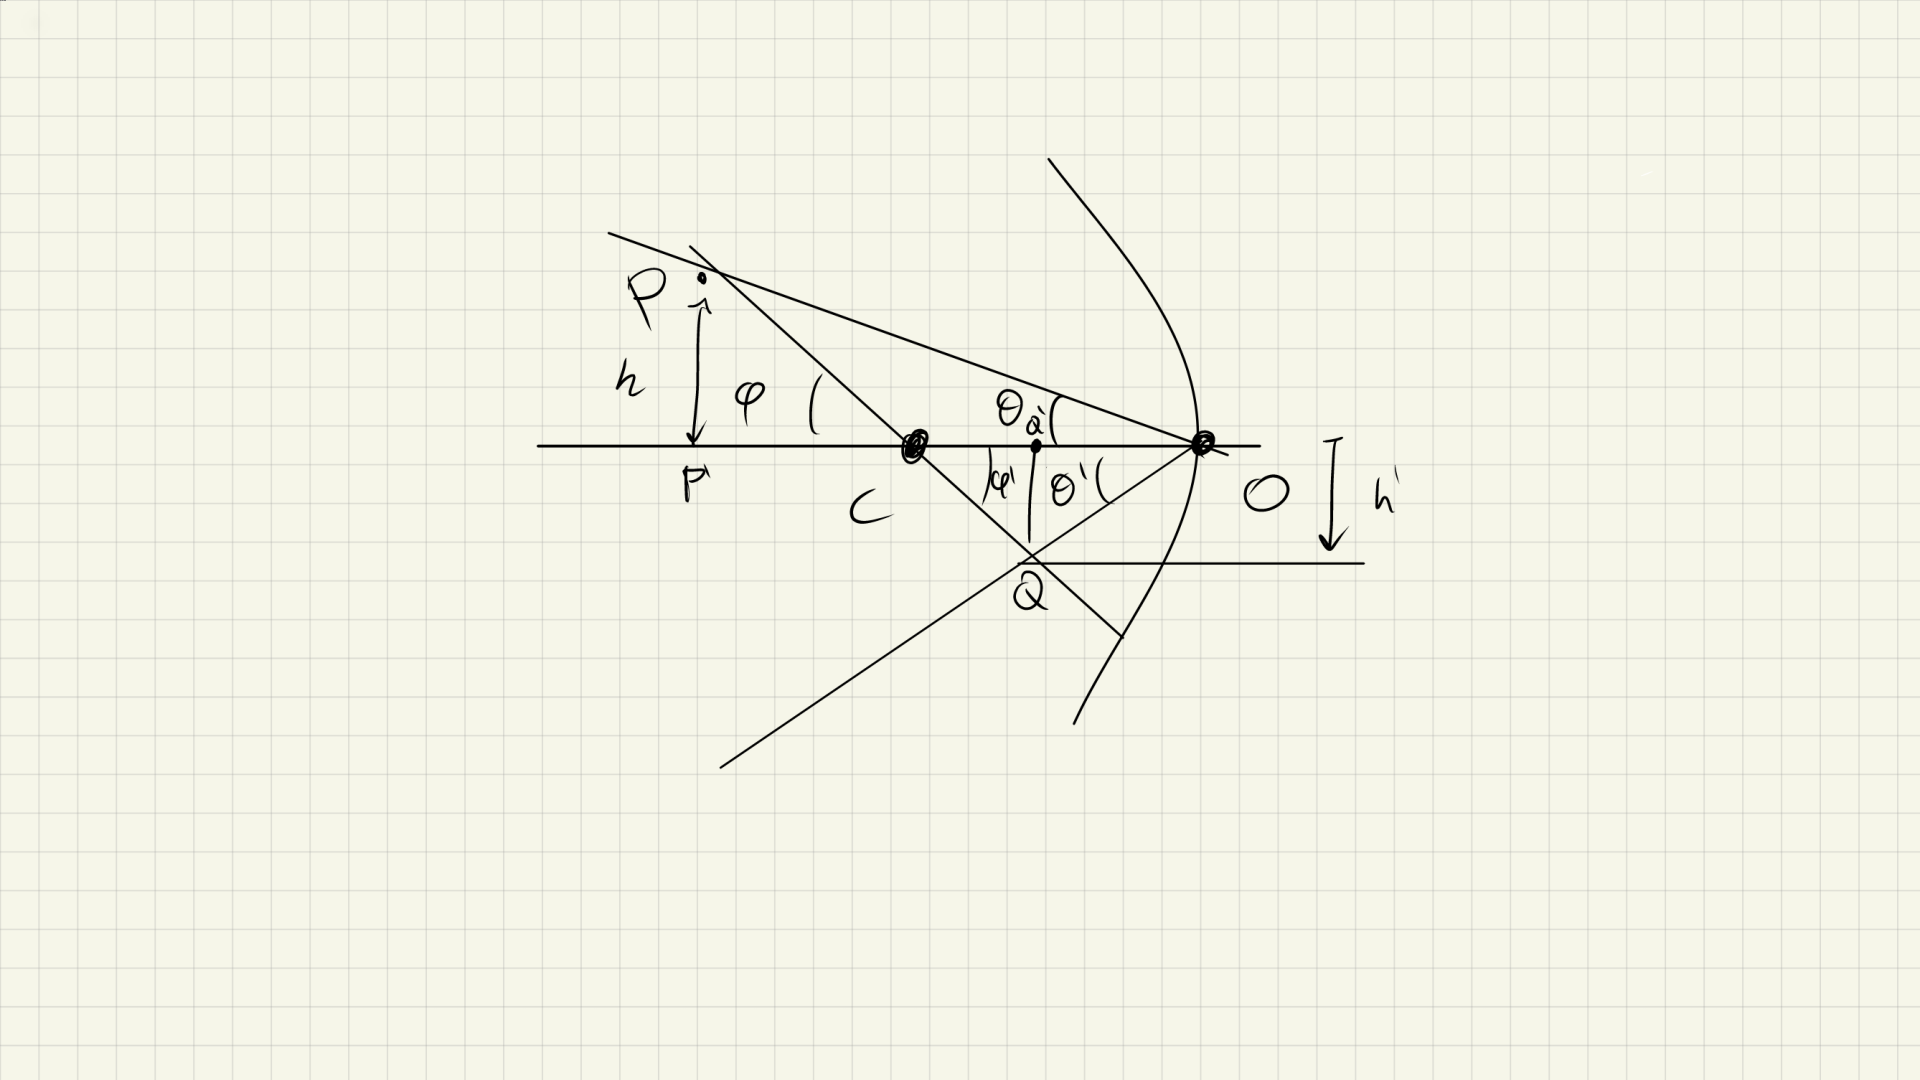 P
h
φ
θ
Q'
P'
C
φ'
θ'
O
h'
Q